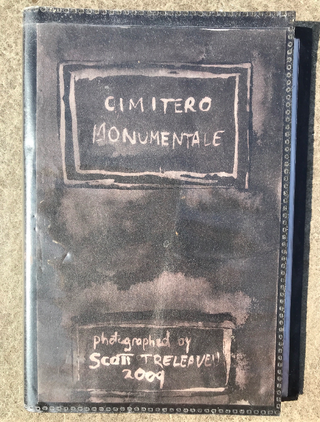 CIMITERO
MONUMENTALE
photographed by
Scott TRELEAVEN
2009